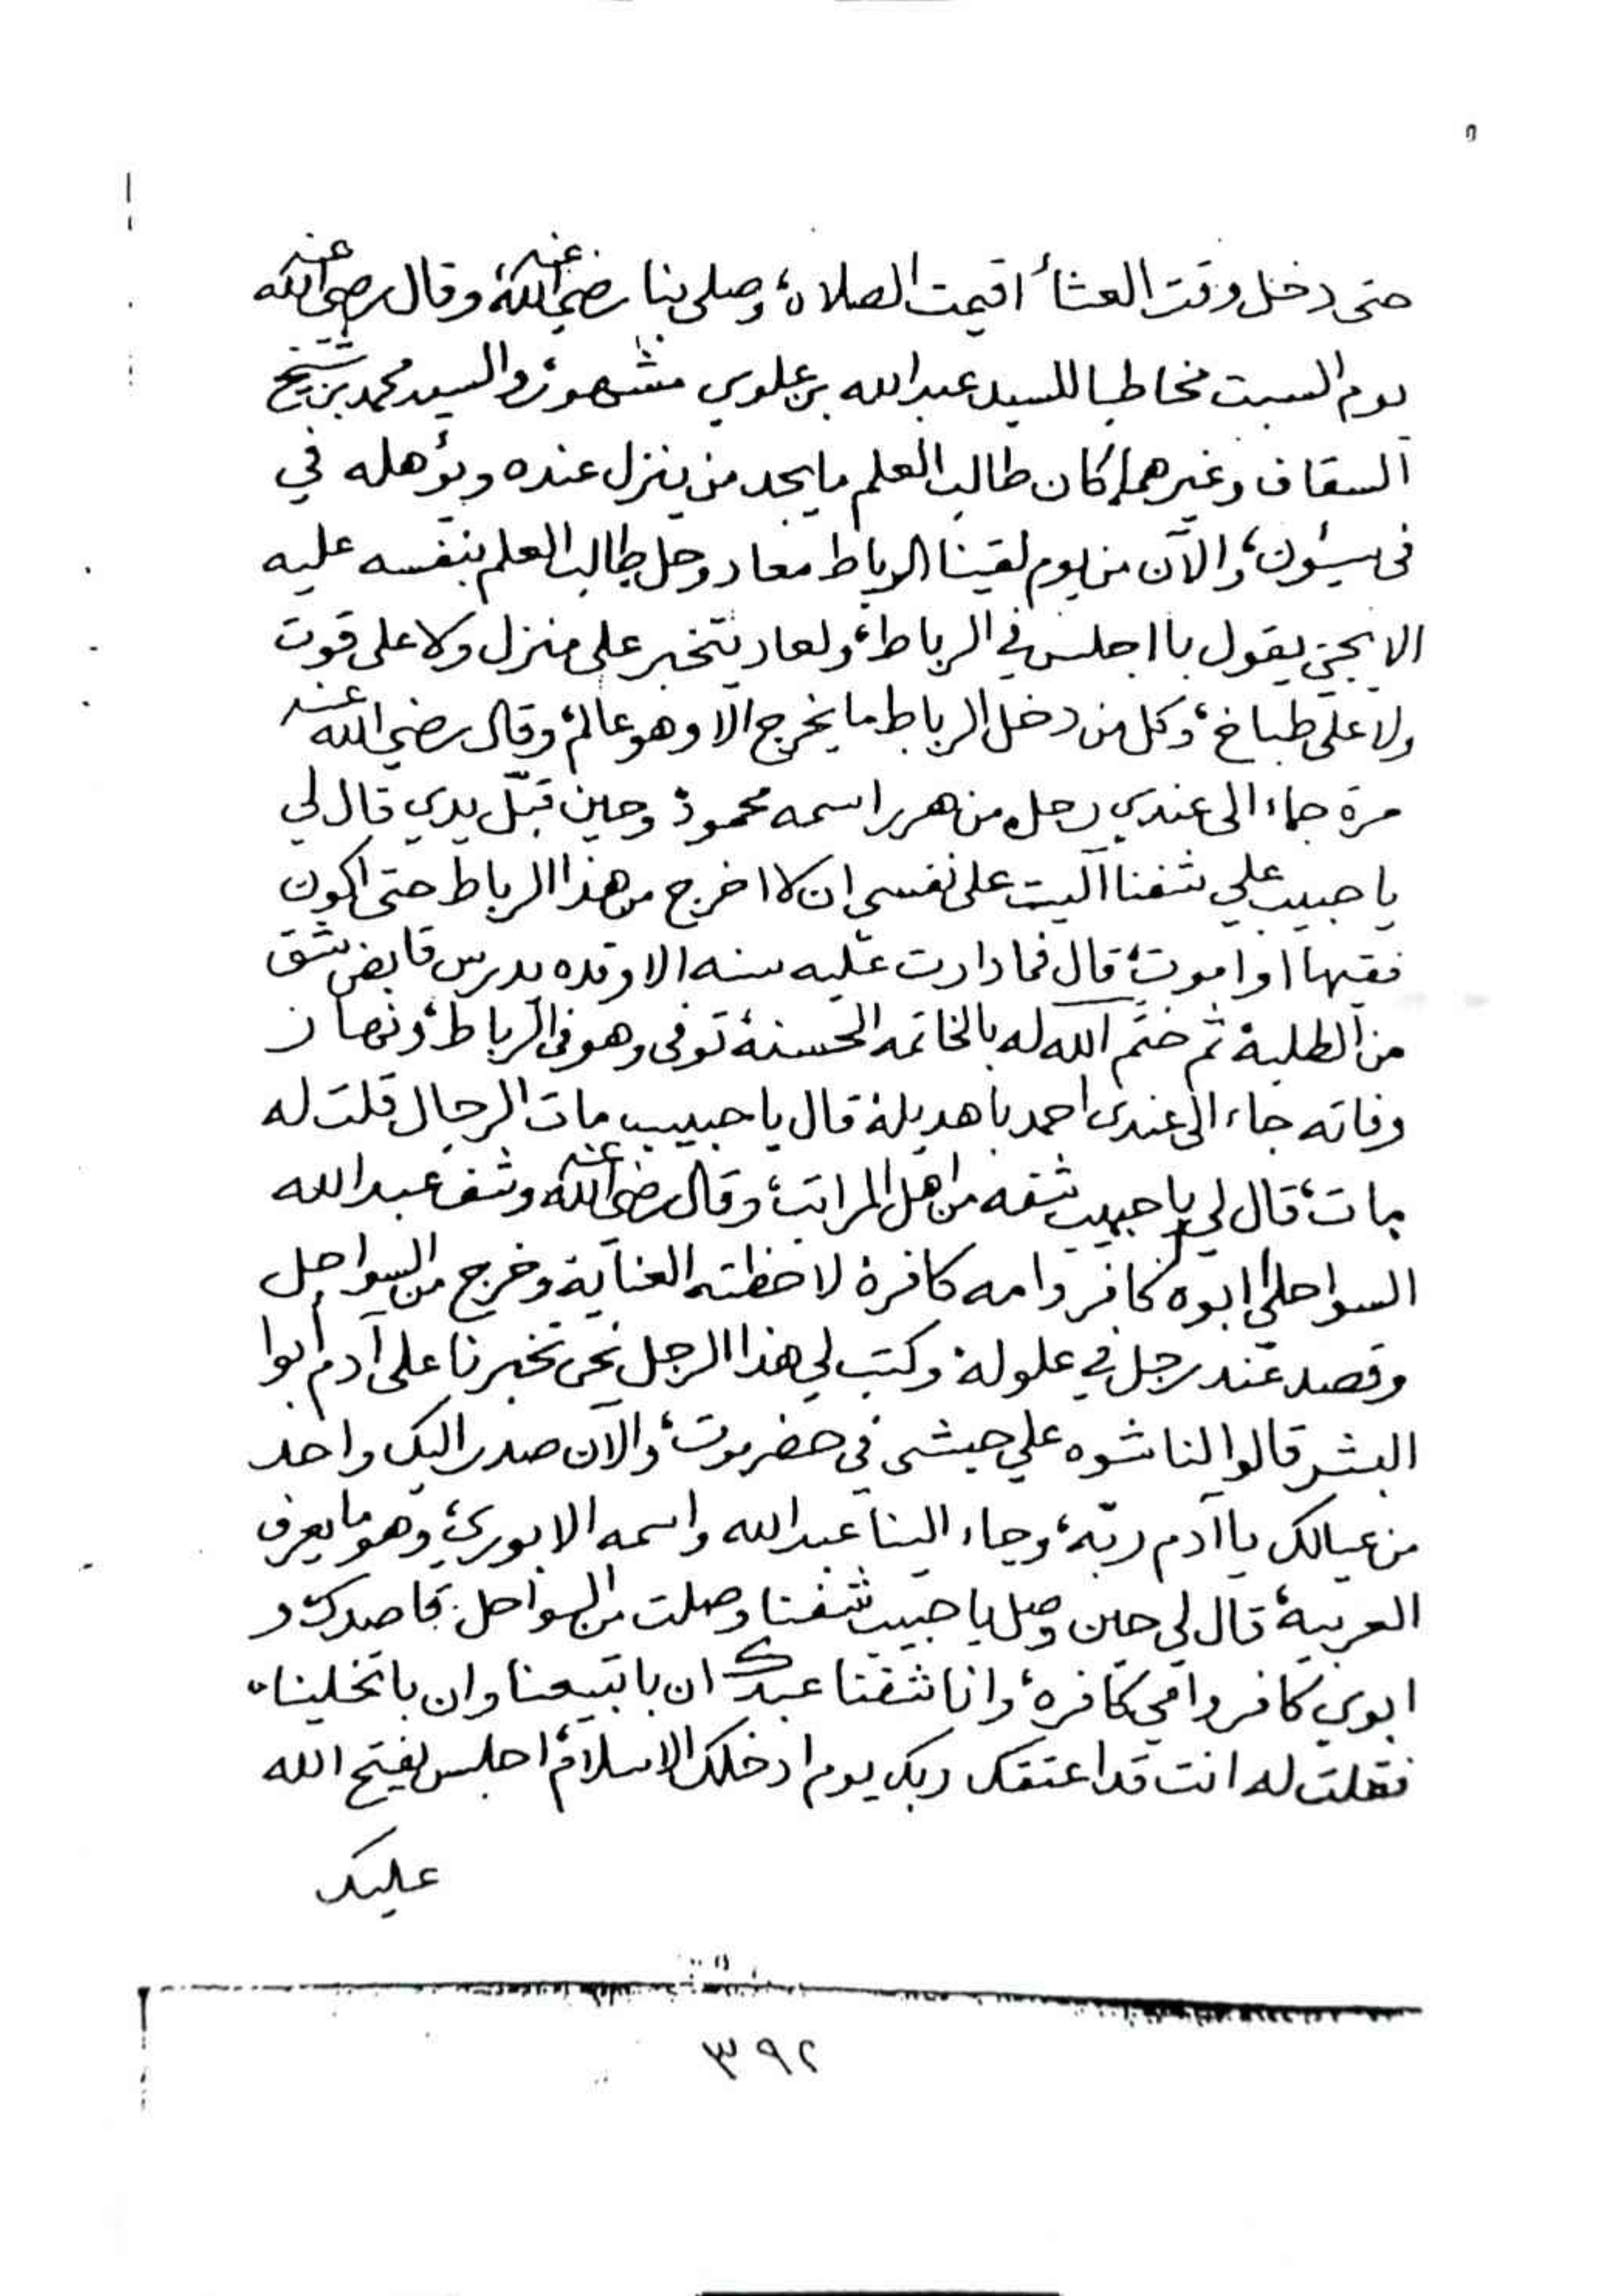 حتى دخل وقت العشأ اقيمت الصلاة، وصلى بنا رضي الله عنه وقال رضي الله عنه
يوم السبت مخاطبا للسيد عبدالله بن علوي مشهور، والسيد محمد بن شيخ
السقاف وغيرهما، كان طالب العلم ما يجد من ينزل عنده ويؤهله في
في سيئون، والآن من يوم لقينا الرباط معاد وحل طالب العلم بنفسه عليه
الا يجي يقول با اجلس في الرباط، ولعاد يتخبر على منزل ولا على قوت
ولا على طباخ، وكل من دخل الرباط ما يخرج الا وهو عالم، وقال رضي الله عنه
مرة جاء الى عندي رجل من هرر اسمه محمود، وحين قبّل يدي قال لي
يا حبيب علي شفنا آليت على نفسي ان لا اخرج من هذا الرباط حتى اكون
فقيها او اموت، قال فما دارت عليه سنه الا وقده يدرس قابض شق
من الطلبة ثم ختم الله له بالخاتمه الحسنة، توفى وهو في الرباط، ونهار
وفاته جاء الى عندي احمد باهديلة قال يا حبيب مات الرجال قلت له
مات، قال لي يا حبيب شفه من اهل المراتب، وقال رضي الله عنه وشف عبدالله
السواحلي ابوه كافر وامه كافرة لاحظته العناية وخرج من السواحل
وقصد عند رجل في علولة وكتب لي هذا الرجل نحن تخبرنا على آدم أبوا
البشر قالوا لنا شوه علي حبشي في حضرموت، والآن صدر اليك واحد
من عيالك يا آدم ربّه، وجاء الينا عبدالله واسمه الابوري، وهو ما يعرف
العربية، قال لي حين وصل يا حبيب شفنا وصلت من السواحل بقاصدك و
ابوي كافر وامي كافره، وانا شفنا عبدك ان با تبيعنا وان با تخلينا،
فقلت له انت قد اعتقك ربك يوم ادخلك الاسلام، اجلس يفتح الله
عليك
٣٩٢